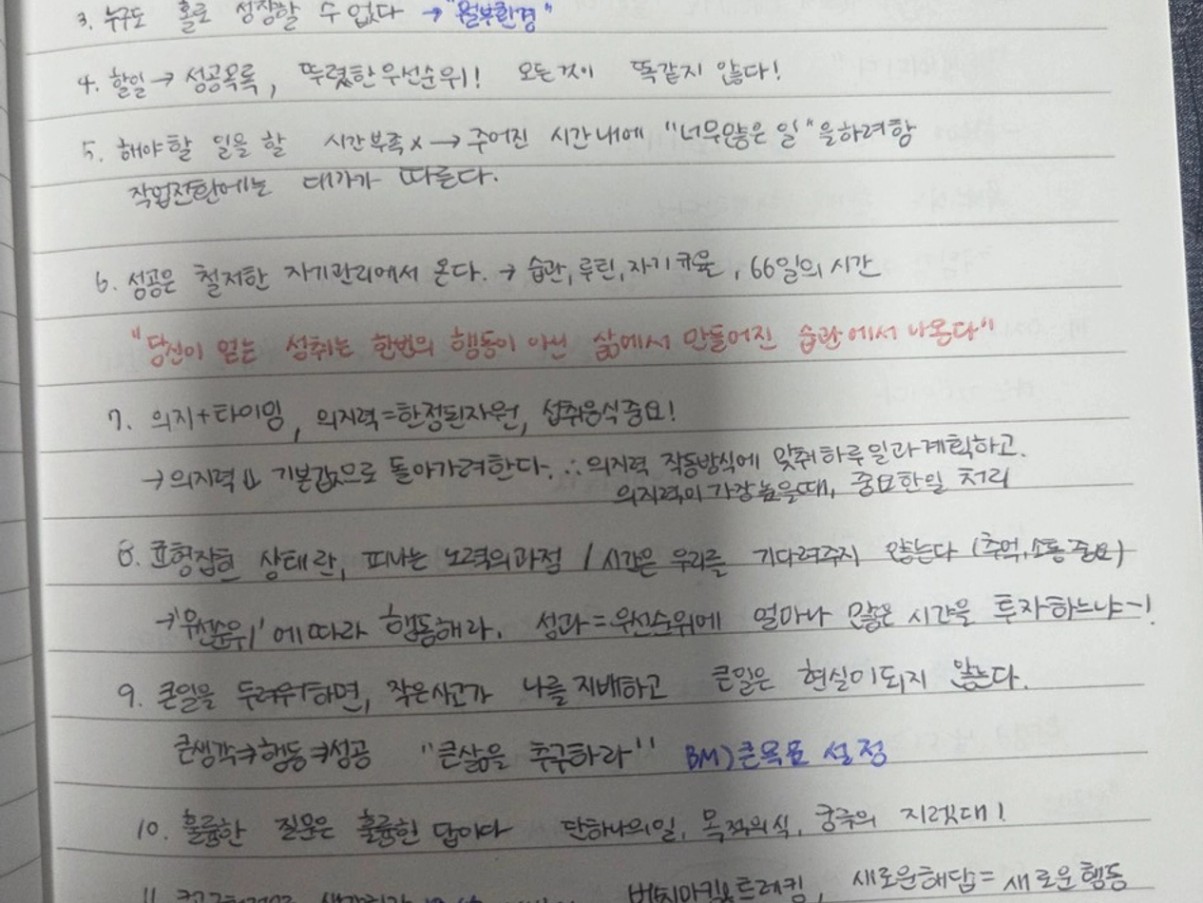 3. 누구도 홀로 성장할 수 없다 → "외부환경"
4. 할일 → 성공목록, 뚜렷한 우선순위! 모든것이 똑같지 않다!
5. 해야할 일을 할 시간부족 x → 주어진 시간내에 "너무많은 일"을하려함
작업전환에는 대가가 따른다.
6. 성공은 철저한 자기관리에서 온다. → 습관, 루틴, 자기규율, 66일의 시간
"당신이 얻는 성취는 한번의 행동이 아닌 삶에서 만들어진 습관에서 나온다"
7. 의지+타이밍, 의지력=한정된자원, 섭취음식중요!
→ 의지력⇓ 기본값으로 돌아가려한다. ∴ 의지력 작동방식에 맞춰 하루일과계획하고.
의지력이 가장높을때, 중요한일 처리
8. 균형잡힌 상태란, 피나는 노력의과정 / 시간은 우리를 기다려주지 않는다 (추억, 소통중요)
→ '우선순위'에따라 행동해라. 성과=우선순위에 얼마나 많은 시간을 투자하느냐-!
9. 큰일을 두려워하면, 작은사고가 나를지배하고 큰일은 현실이되지 않는다.
큰생각→행동→성공 "큰삶을 추구하라" BM)큰목표 설정
10. 훌륭한 질문은 훌륭한 답이다 단하나의일, 목적의식, 궁극의 지렛대!
11. 벤치마킹&트레킹, 새로운해답=새로운행동